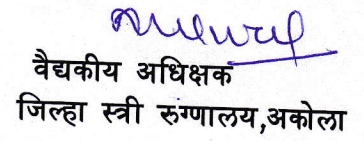 वैद्यकीय अधिक्षक
जिल्हा स्त्री रुग्णालय,अकोला